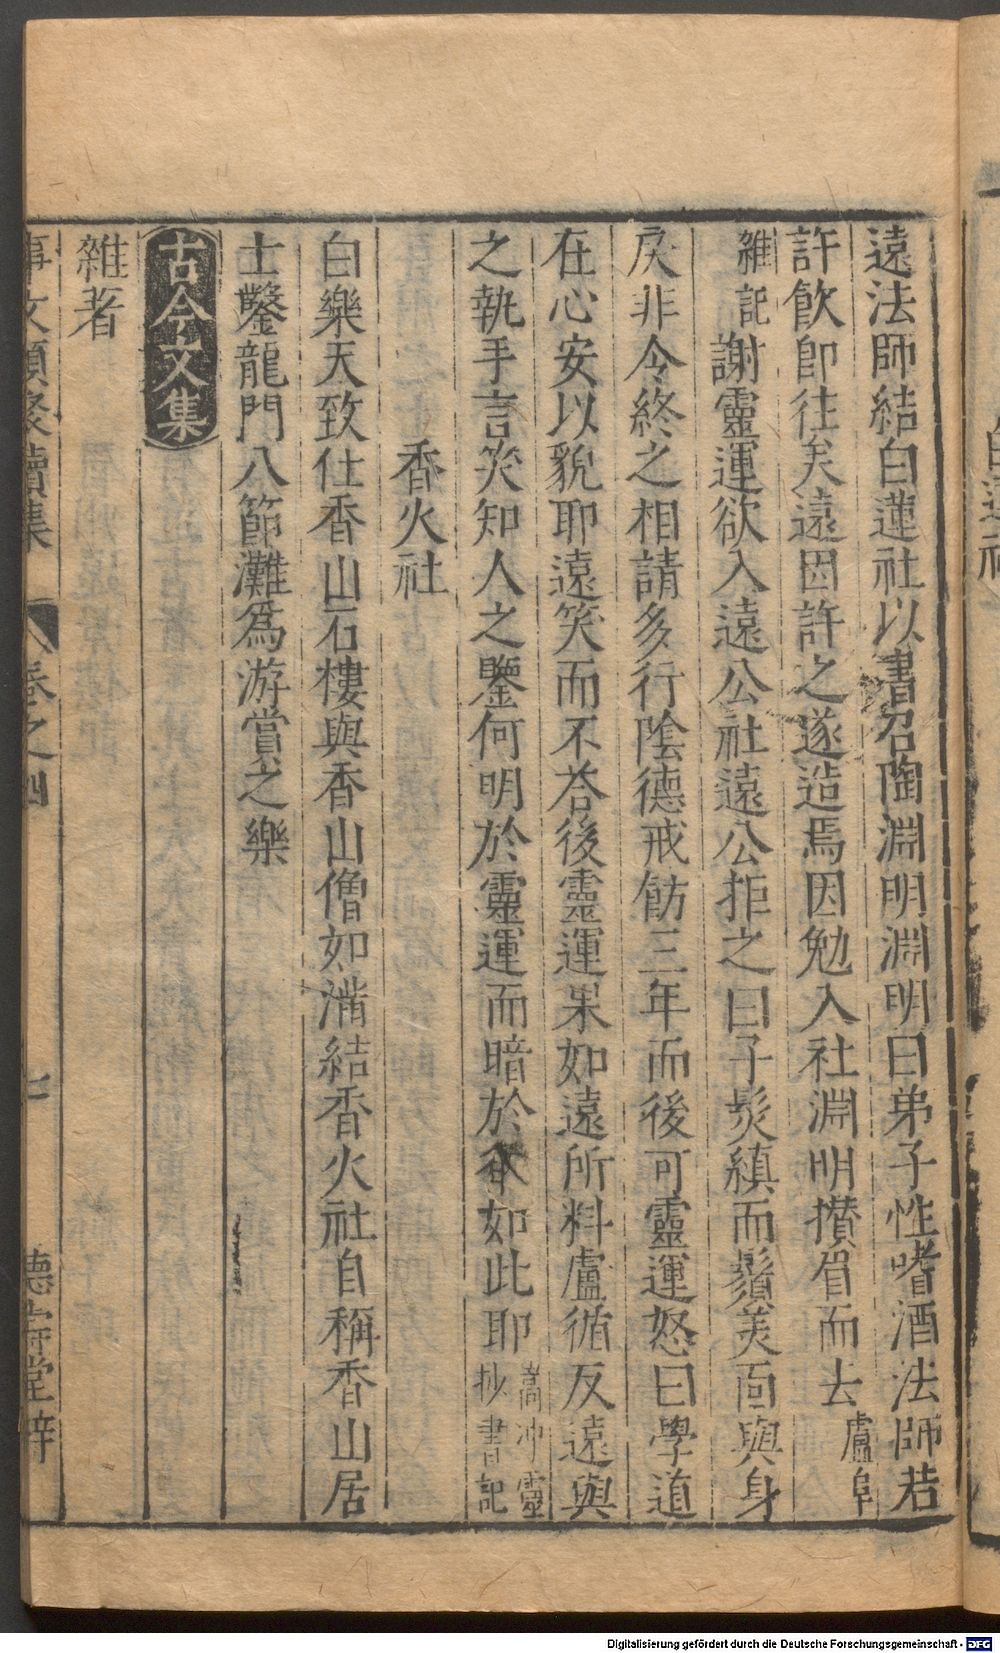 遠法師結白蓮社以書召陶淵明淵明曰弟子性嗜酒法師若
許飲卽往矣遠因許之遂造焉因勉入社淵明攅眉而去盧阜
雜記謝靈運欲入遠公社遠公拒之曰子髮縝而鬚美面與身
戾非令終之相請多行陰德戒飭三年而後可靈運怒曰學道
在心安以貌耶遠笑而不荅後靈運果如遠所料盧循反遠與
之執手言笑知人之鑒何明於靈運而暗於如此耶嵩沖靈
抄書記
香火社
白樂天致仕香山石樓與香山僧如滿結香火社自稱香山居
士鑿龍門八節灘爲游賞之樂
古今文集
雜著
事文類聚續集 卷之四 七 德壽堂梓
白蓮社
Digitalisierung gefördert durch die Deutsche Forschungsgemeinschaft - DFG